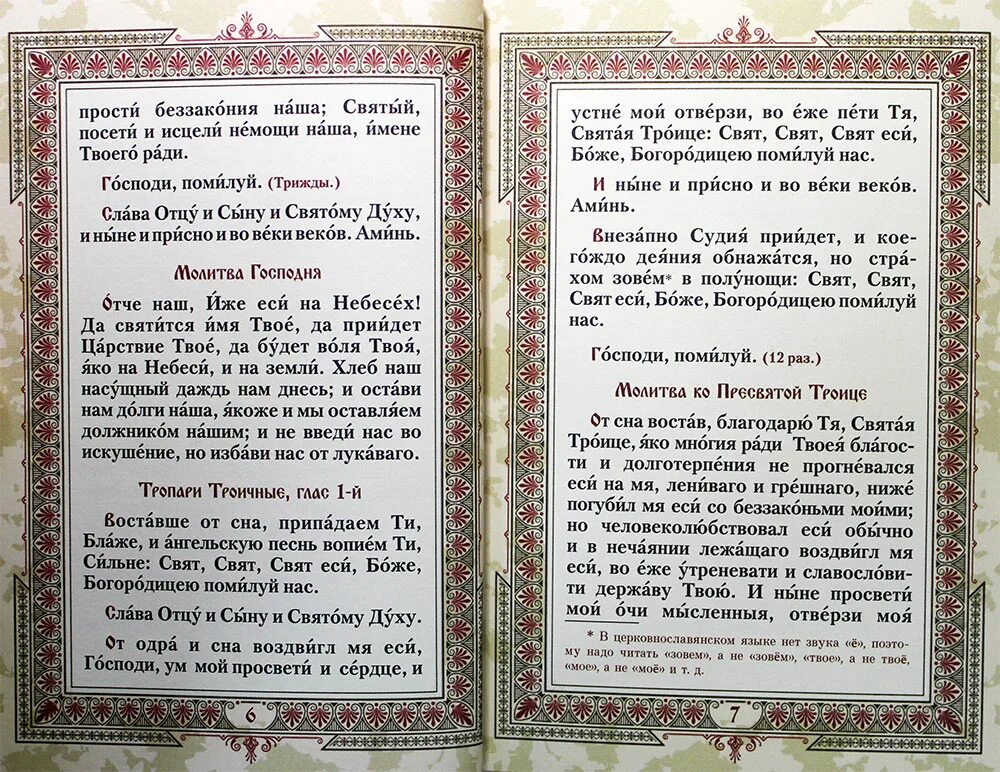 прости́ беззако́ния на́ша; Святы́й,
посети́ и исцели́ не́мощи на́ша, и́мене
Твоего́ ра́ди.
Го́споди, поми́луй. (Трижды.)
Сла́ва Отцу́ и Сы́ну и Свято́му Ду́ху,
и ны́не и при́сно и во ве́ки веко́в. Ами́нь.
Молитва Господня
О́тче наш, И́же еси́ на Небесе́х!
Да святи́тся и́мя Твое́, да прии́дет
Ца́рствие Твое́, да бу́дет во́ля Твоя́,
я́ко на Небеси́, и на земли́. Хлеб наш
насу́щный даждь нам днесь; и оста́ви
нам до́лги на́ша, я́коже и мы оставля́ем
должнико́м на́шим; и не введи́ нас во
искуше́ние, но изба́ви нас от лука́ваго.
Тропари Троичные, глас 1-й
Воста́вше от сна, припа́даем Ти,
Бла́же, и а́нгельскую песнь вопие́м Ти,
Си́льне: Свят, Свят, Свят еси́, Бо́же,
Богоро́дицею поми́луй нас.
Сла́ва Отцу́ и Сы́ну и Свято́му Ду́ху.
От одра́ и сна воздви́гл мя еси́,
Го́споди, ум мой просвети́ и се́рдце, и
6
устне́ мои́ отве́рзи, во е́же пе́ти Тя,
Свята́я Тро́ице: Свят, Свят, Свят еси́,
Бо́же, Богоро́дицею поми́луй нас.
И ны́не и при́сно и во ве́ки веко́в.
Ами́нь.
Внеза́пно Судия́ прии́дет, и кое-
го́ждо дея́ния обнажа́тся, но стра́-
хом зове́м* в полу́нощи: Свят, Свят,
Свят еси́, Бо́же, Богоро́дицею поми́луй
нас.
Го́споди, поми́луй. (12 раз.)
Молитва ко Пресвятой Троице
От сна воста́в, благодарю́ Тя, Свята́я
Тро́ице, я́ко мно́гия ра́ди Твоея́ бла́гос-
ти и долготерпе́ния не прогне́вался
еси́ на мя, лени́ваго и гре́шнаго, ниже́
погуби́л мя еси́ со беззако́ньми мои́ми;
но человеколю́бствовал еси́ обы́чно
и в неча́янии лежа́щаго воздви́гл мя
еси́, во е́же у́треневати и славосло́ви-
ти держа́ву Твою́. И ны́не просвети́
мои́ о́чи мы́сленныя, отве́рзи моя́
* В церковнославянском языке нет звука «ё», поэто-
му надо читать «зовем», а не «зовём», «твое», а не твоё,
«мое», а не «моё» и т. д.
7